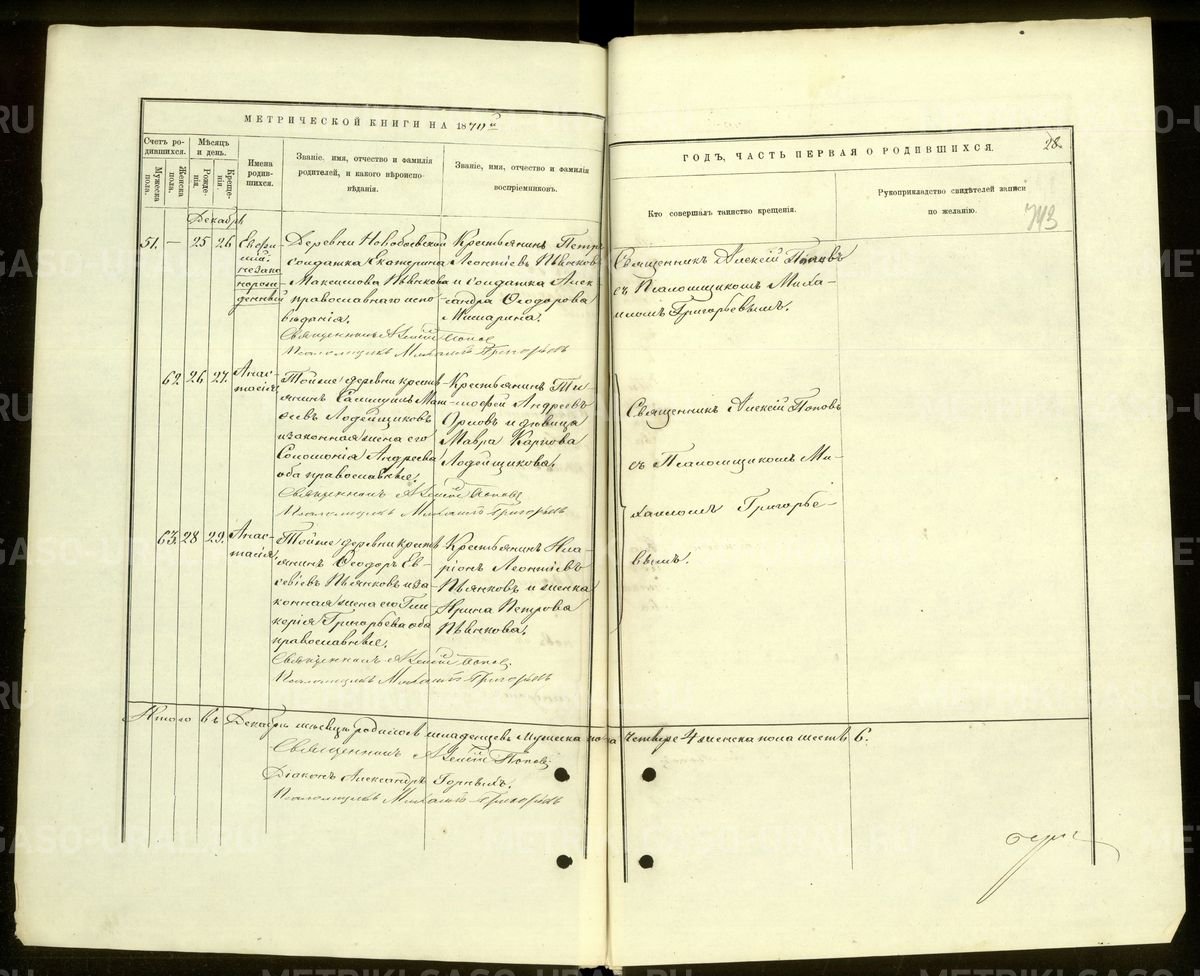 МЕТРИЧЕСКОЙ КНИГИ НА 1870й
ГОДЪ, ЧАСТЬ ПЕРВАЯ О РОДИВШИХСЯ.
28.
743
Счетъ ро-
дившихся.
Мужеска
пола.
Женска
пола.
Мѣсяцъ
и день.
Рожде-
нія.
Креще-
нія.
Имена
родив-
шихся.
Званіе, имя, отчество и фамилія
родителей, и какого вѣроиспо-
вѣданія.
Званіе, имя, отчество и фамилія
воспріемниковъ.
Кто совершалъ таинство крещенія.
Рукоприкладство свидѣтелей записи
по желанію.
Декабрь
51. — 25 26
незако
норож
денный
Деревни
солдатка Екатерина
Максимова Пьянкова
православнаго испо
вѣданія.
Священникъ Алексій Попов
Псаломщикъ Михаилъ Григорьевъ
Крестьянинъ Петръ
Леонтіевъ Пьянков
и солдатка Алек
сандра Ѳеодорова
Мишарина.
Священникъ Алексій Поповъ
съ Псаломщикомъ Миха-
иломъ Григорьевымъ.
62. 26 27.
Анас-
тасія
Тойже деревни крестья
янинъ Мат
ѳеевъ Лодейщиковъ
и законная жена его
Соломонія Андреева
оба православные.
Священникъ Алексій Поповъ
Псаломщикъ Михаилъ Григорьевъ
Крестьянинъ Ти-
моѳей Андреевъ
Орловъ и дѣвица
Мавра Карпова
Лодейщикова.
Священникъ Алексій Поповъ
съ Псаломщикомъ Ми-
хаиломъ Григорье-
вымъ.
63. 28 29.
Анас-
тасія
Тойже деревни крестья
янинъ Ѳеодоръ Ев-
севіевъ Пьянковъ и за-
конная жена его Гли-
керія Григорьева оба
православные.
Священникъ Алексій Поповъ
Псаломщикъ Михаилъ Григорьевъ
Крестьянинъ Ила-
ріонъ Леонтіевъ
Пьянковъ и женка
Ирина Петрова
Пьянкова.
Итого въ Декабрѣ мѣсяцѣ родилось младенцевъ мужеска пола четверо 4 женска пола шесть 6.
Священникъ Алексій Поповъ
Діаконъ Александръ Горныхъ.
Псаломщикъ Михаилъ Григорьевъ
METRIKI-GASO-URAL.RU